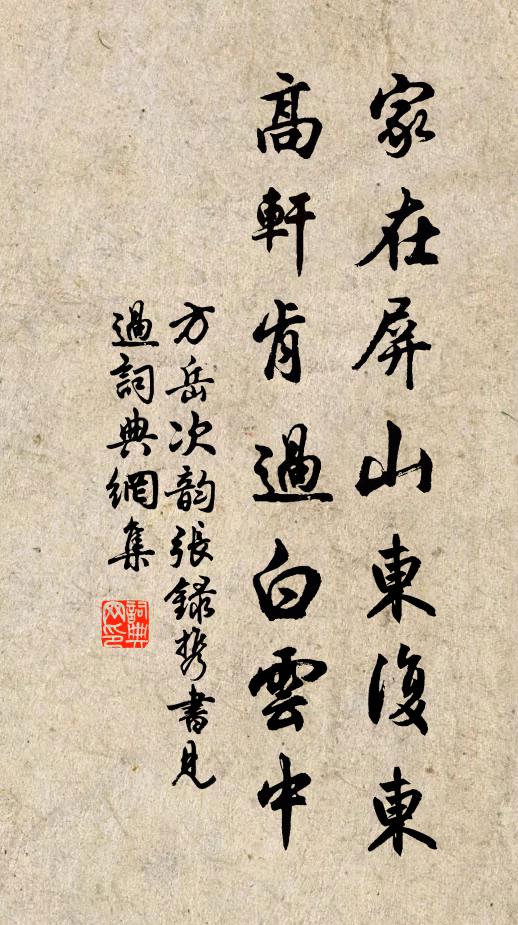 家在屏山東復東
高軒肯過白雲中
方岳次韵張録携書見
過詞典網集
詞典网印